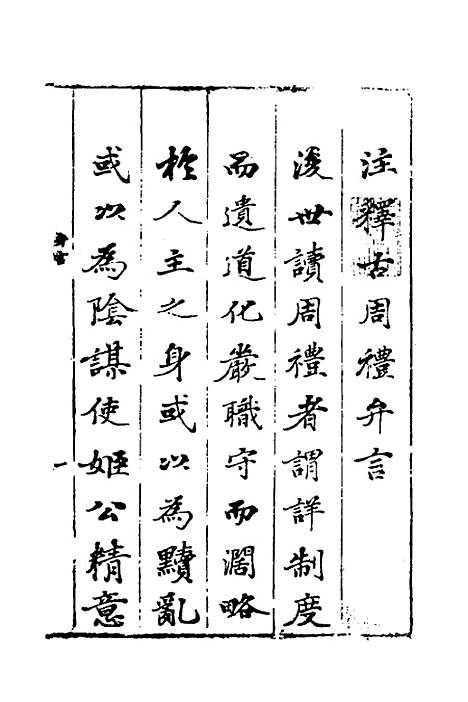 注釋古周禮弁言
後世讀周禮者謂詳制度
而遺道化嚴職守而濶略
於人主之身或以為黷亂
或以為陰謀使姬公精意
弁言
一